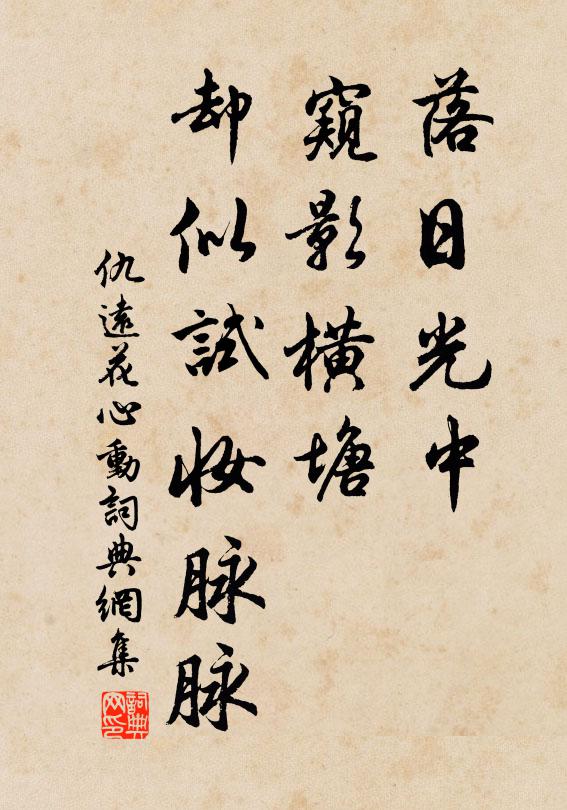 落日光中
窺影橫塘
却似試妝脉脉
仇遠花心動詞典網集
詞典網印